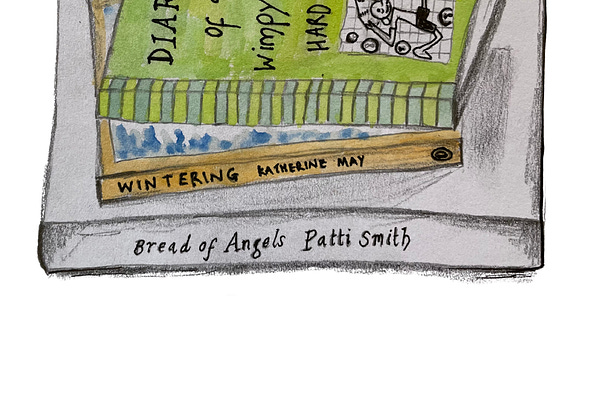 DIAR
of a
Wimpy
HARD
WINTERING KATHERINE MAY
Bread of Angels Patti Smith